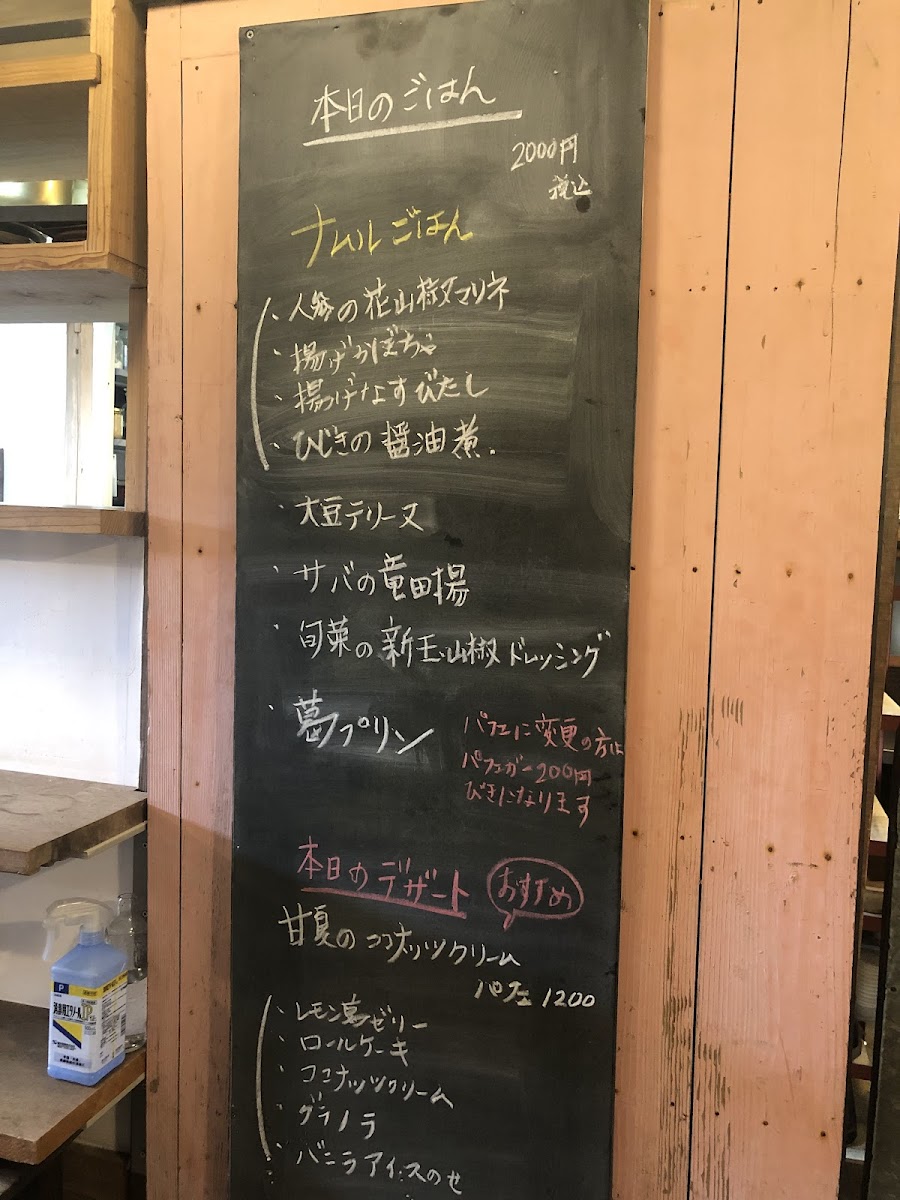 本日のごはん
2000円
税込
ナムルごはん
・人参の花山椒マリネ
・揚げかぼちゃ
・揚げなすびたし
・ひじきの醤油煮.
・大豆テリーヌ
・サバの竜田揚
・旬菜の新玉山椒ドレッシング
・葛プリン
パフェに変更の方は
パフェガ-200円
びきになります
本日のデザート
おすすめ
甘夏のココナッツクリーム
パフェ 1200
・レモン葛ゼリー
・ロールケーキ
・ココナッツクリーム
・グラノラ
・バニラアイスのせ
P
消毒用エタノール
IP